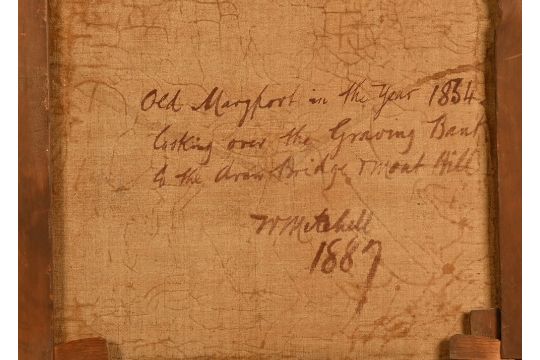 Old Maryport in the Year 1834
looking over the Graving Bank
to the Bridge & Moat Hill
W Mitchell
1887